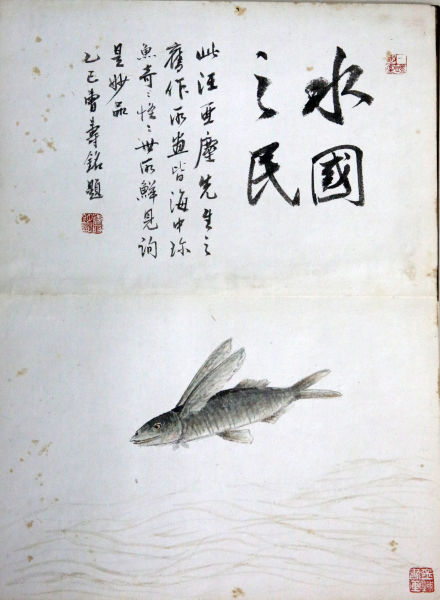 水國
之民
此汪亞塵先生之
舊作所畫皆海中珍
魚奇〻怪〻世所鮮見詢
是妙品
乙巳曹壽銘題